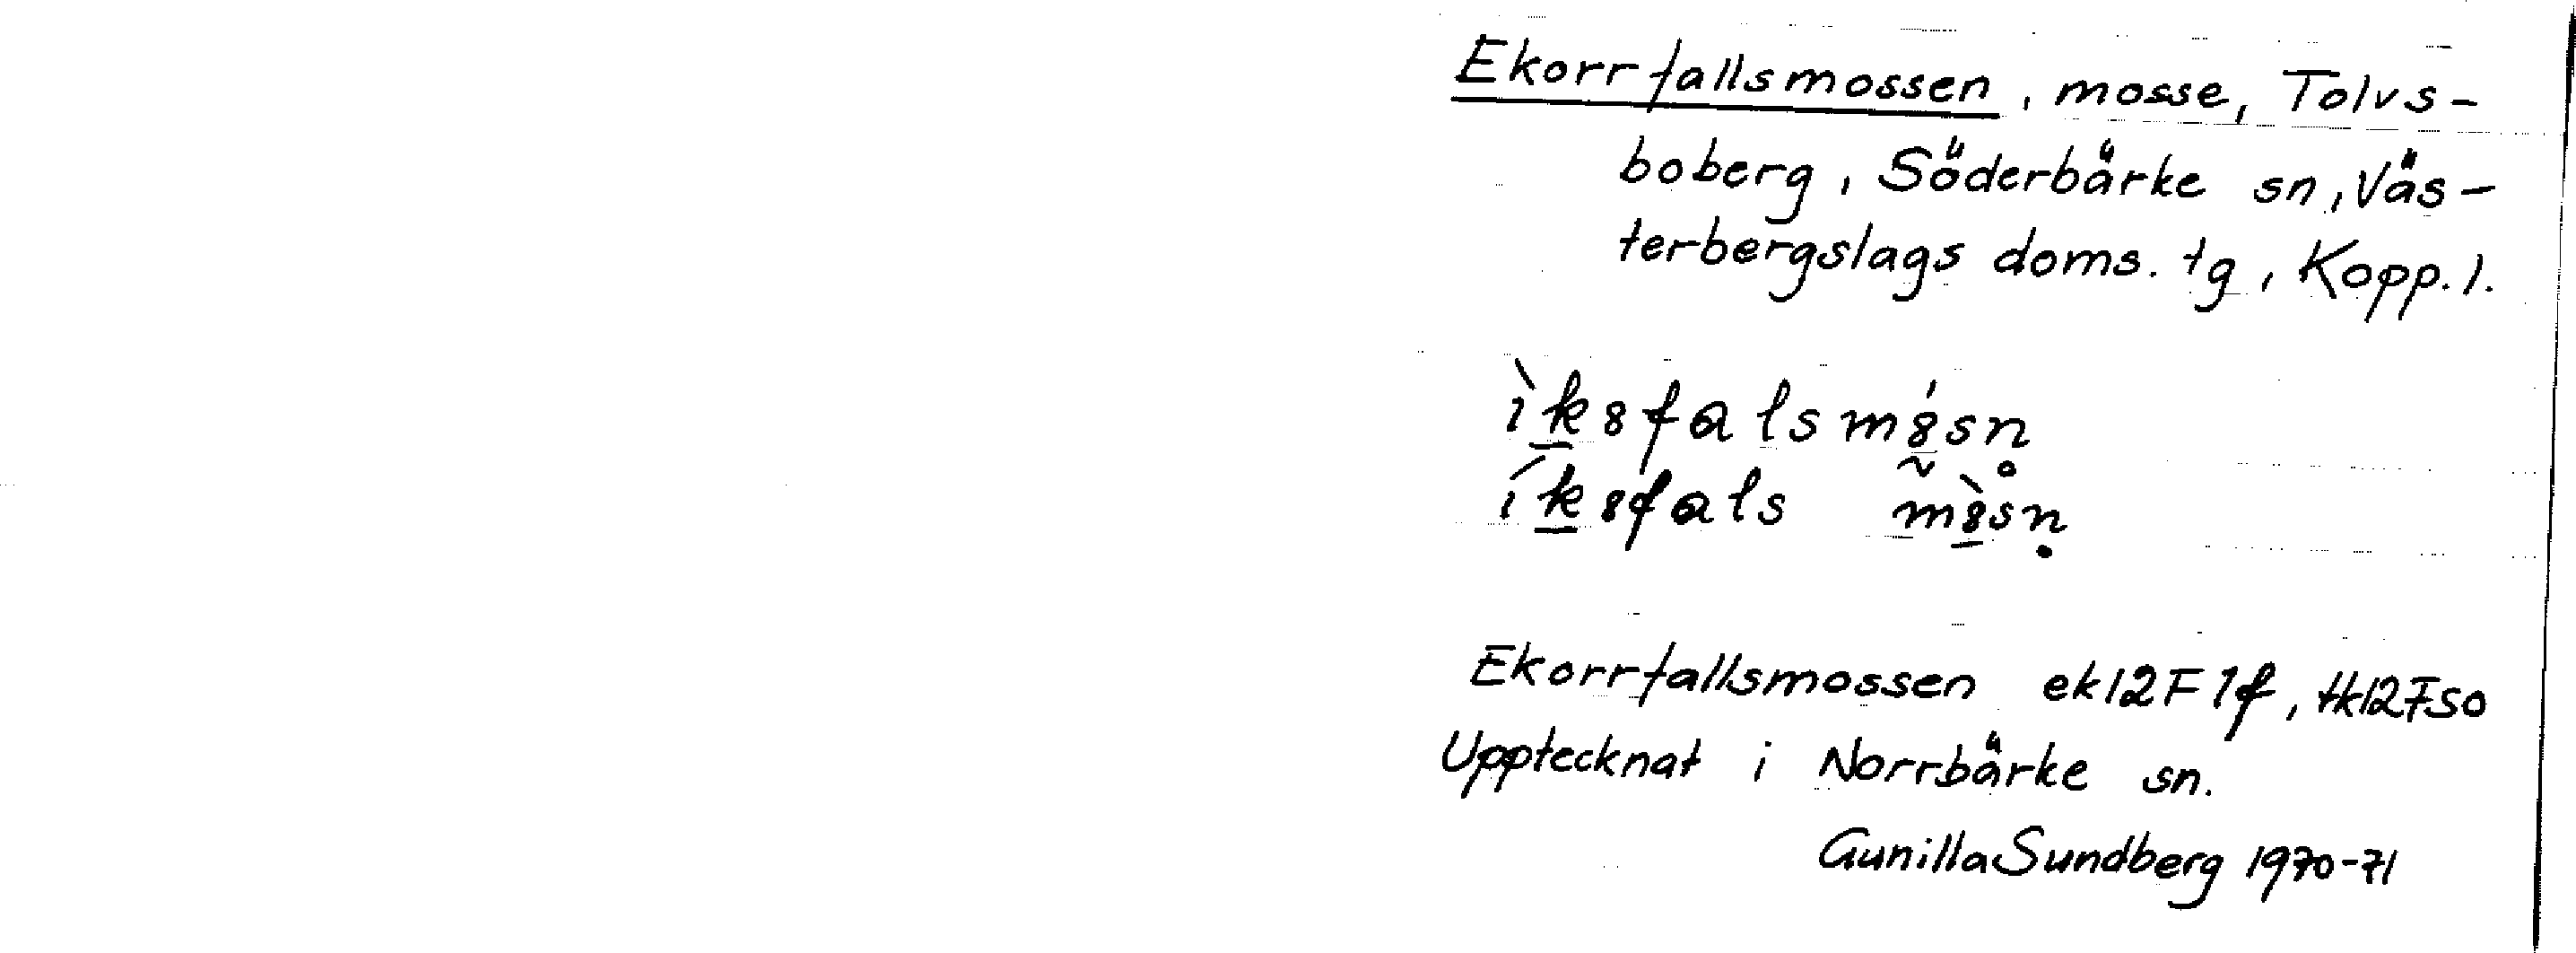 Ekorrfallsmossen, mosse, Tolvs-
boberg, Söderbärke sn, Väs-
terbergslags doms. tg, Kopp. l.
Ekorrfallsmossen ek12F1f, tk12FSO
Upptecknat i Norrbärke sn.
Gunilla Sundberg 1970-71